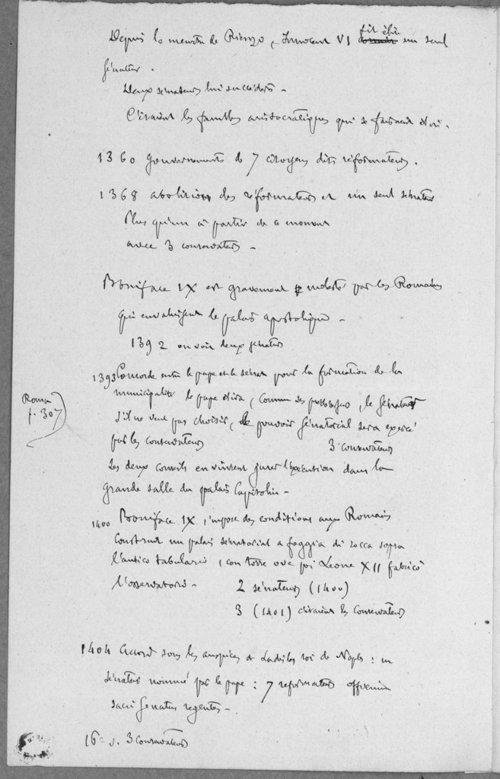 Depuis la mort de Rienzo, Innocent VI fit élire un seul
sénateur.
Deux sénateurs lui succédèrent -
C'étaient les familles aristocratiques qui se faisaient élire.
1360 Gouvernement de 7 citoyens dits réformateurs.
1368 abolition des réformateurs et un seul sénateur
Plus qu'un à partir de ce moment
avec 3 conservateurs -
Boniface IX est gravement molesté par les Romains
qui envahissent le palais apostolique -
1392 on voit deux sénateurs
1393 Concorde entre le pape et le sénat pour la formation de la
municipalité le pape élira, comme ses prédécesseurs, le sénateur
Roma
p. 307
s'il ne veut pas choisir, le pouvoir sénatorial sera exercé
par les conservateurs 3 conservateurs
Les deux conseils en vinrent jurer l'exécution dans la
grande salle du palais Capitolin -
1400 Boniface IX impose des conditions aux Romains
Construit un palais sénatorial a foggia di rocca sopra
l'antico tabulario, con torre ove poi Leone XII fabricò
l'osservatorio - 2 sénateurs (1400)
3 (1401) c'étaient les Conservateurs
1404 Accord sous les auspices de Ladislas roi de Naples : un
sénateur nommé par le pape : 7 reformateurs
sacri Senatus regentes -
16e s. 3 conservateurs